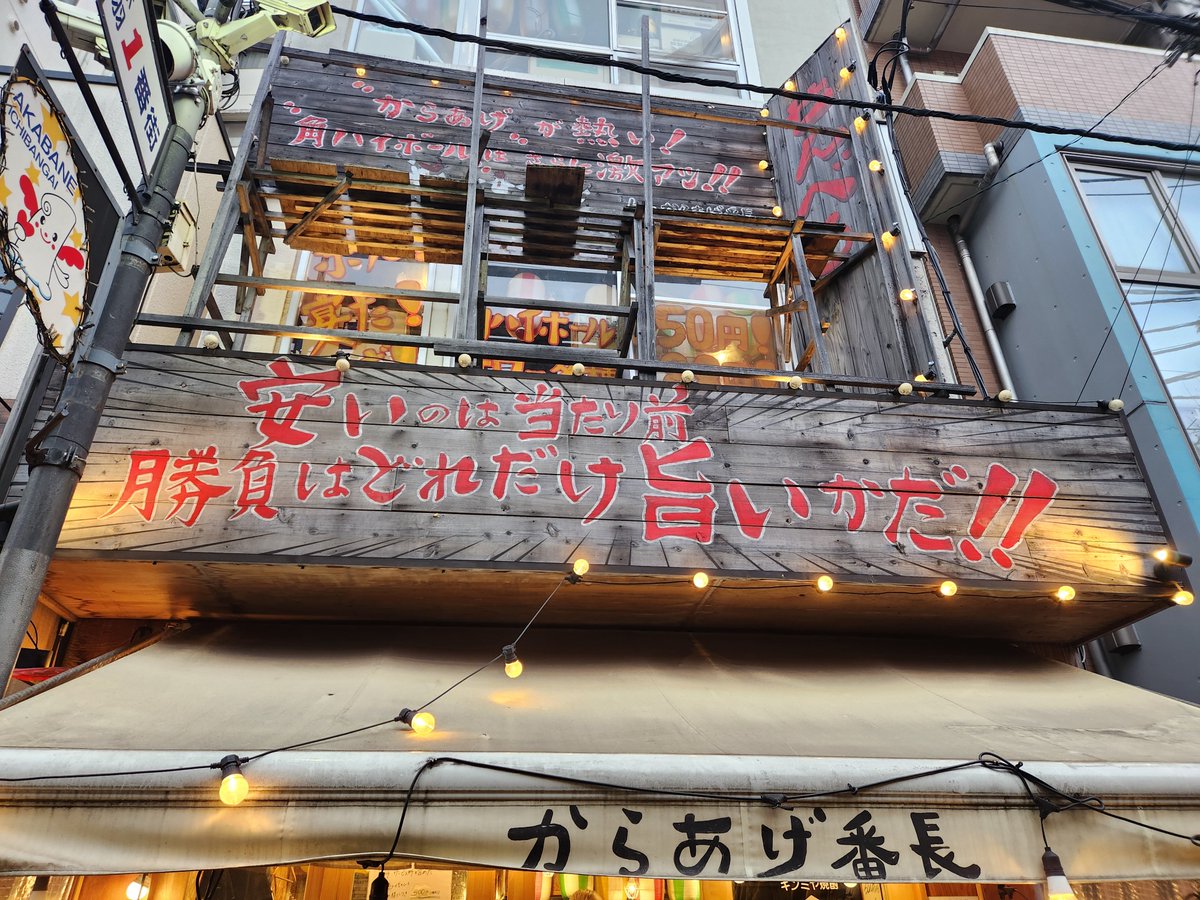 1番街
AKABANE
ICHIBANGAI
"からあげ"が熱い!
角ハイボールは
激アツ!!
ハイボール
50円!
安いのは当たり前
勝負はどれだけ旨いかだ!!
からあげ番長
キンミヤ焼酎